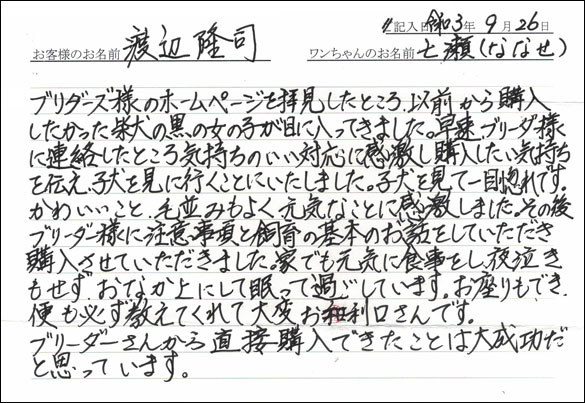 記入日 令和3年9月26日
お客様のお名前 渡辺隆司 ワンちゃんのお名前 七瀬(ななせ)
ブリダーズ様のホームページを拝見したところ、以前から購入
したかった柴犬の黒の女の子が目に入ってきました。早速ブリーダ様
に連絡したところ気持ちのいい対応に感激し購入したい気持ち
を伝え、子犬を見に行くことにいたしました。子犬を見て一目惚れです。
かわいいこと、毛並みもよく元気なことに感激しました。その後
ブリーダー様に注意事項と飼育の基本のお話をしていただき
購入させていただきました。家でも元気に食事をし、夜泣き
もせず、おなか上にして眠って過ごしています。お座りもでき、
便も必ず教えてくれて大変お利口さんです。
ブリーダーさんから直接購入できたことは大成功だ
と思っています。